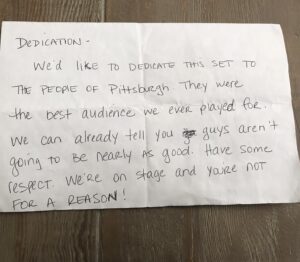 DEDICATION -
We'd like to DEDICATE THIS SET TO
THE PEOPLE OF Pittsburgh. They were
the best audience we ever played for.
We can already tell you guys aren't
going to BE nearly AS good. Have some
respect. We're on stage and you're NOT
FOR A REASON!